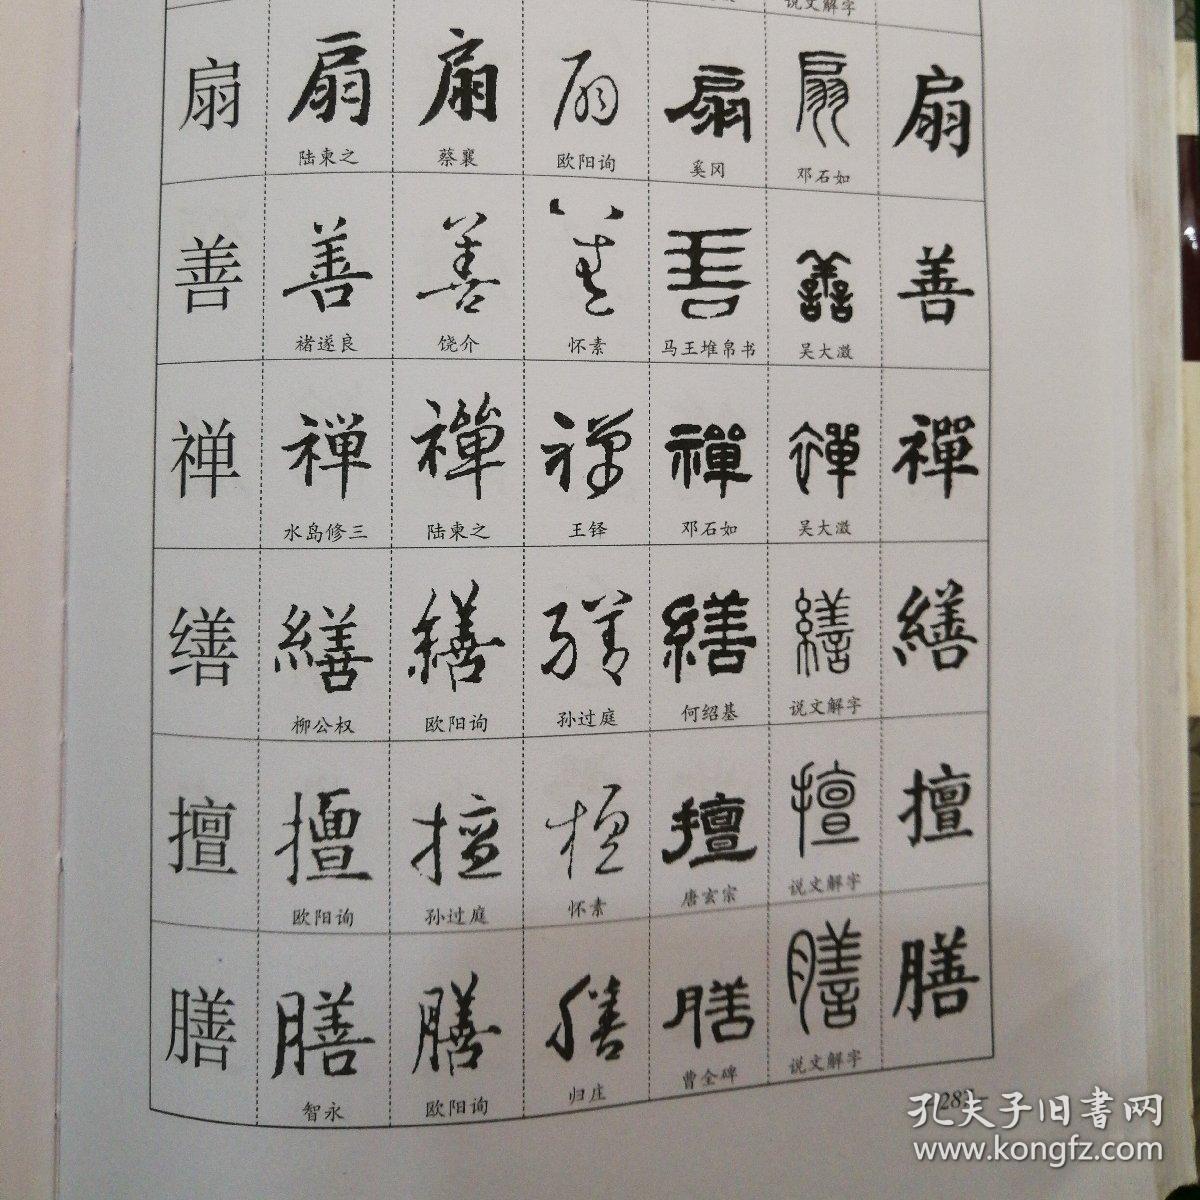 说文解字
扇 扇 扇 扇 扇 扇 扇
陆柬之 蔡襄 欧阳询 奚冈 邓石如
善 善 善 善 善 善 善
褚遂良 饶介 怀素 马王堆帛书 吴大澂
禅 禅 禪 禪 禪 禪 禪
水岛修三 陆柬之 王铎 邓石如 吴大澂
缮 繕 繕 繕 繕 繕 繕
柳公权 欧阳询 孙过庭 何绍基 说文解字
擅 擅 擅 擅 擅 擅 擅
欧阳询 孙过庭 怀素 唐玄宗 说文解字
膳 膳 膳 膳 膳 膳 膳
智永 欧阳询 归庄 曹全碑 说文解字
孔夫子旧書网
www.kongfz.com